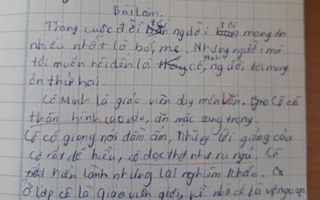 Bài làm.
Trong cuộc đời người tôi mang ơn
nhiều nhất là bố, mẹ. Nhưng người mà
tôi muốn nói đến là cô, người tôi mang
ơn thứ hai
Cô Minh là giáo viên dạy môn văn. Cô có
thân hình cao, ăn mặc sang trọng.
Cô có giọng nói đầm ấm, những lời giảng của
cô rất dễ hiểu, cô đọc thơ như ru ngủ. Cô
hiền lành nhưng lại nghiêm khắc. Ở
ở lớp cô là giáo viên giỏi, về nhà cô là vợ ngoan